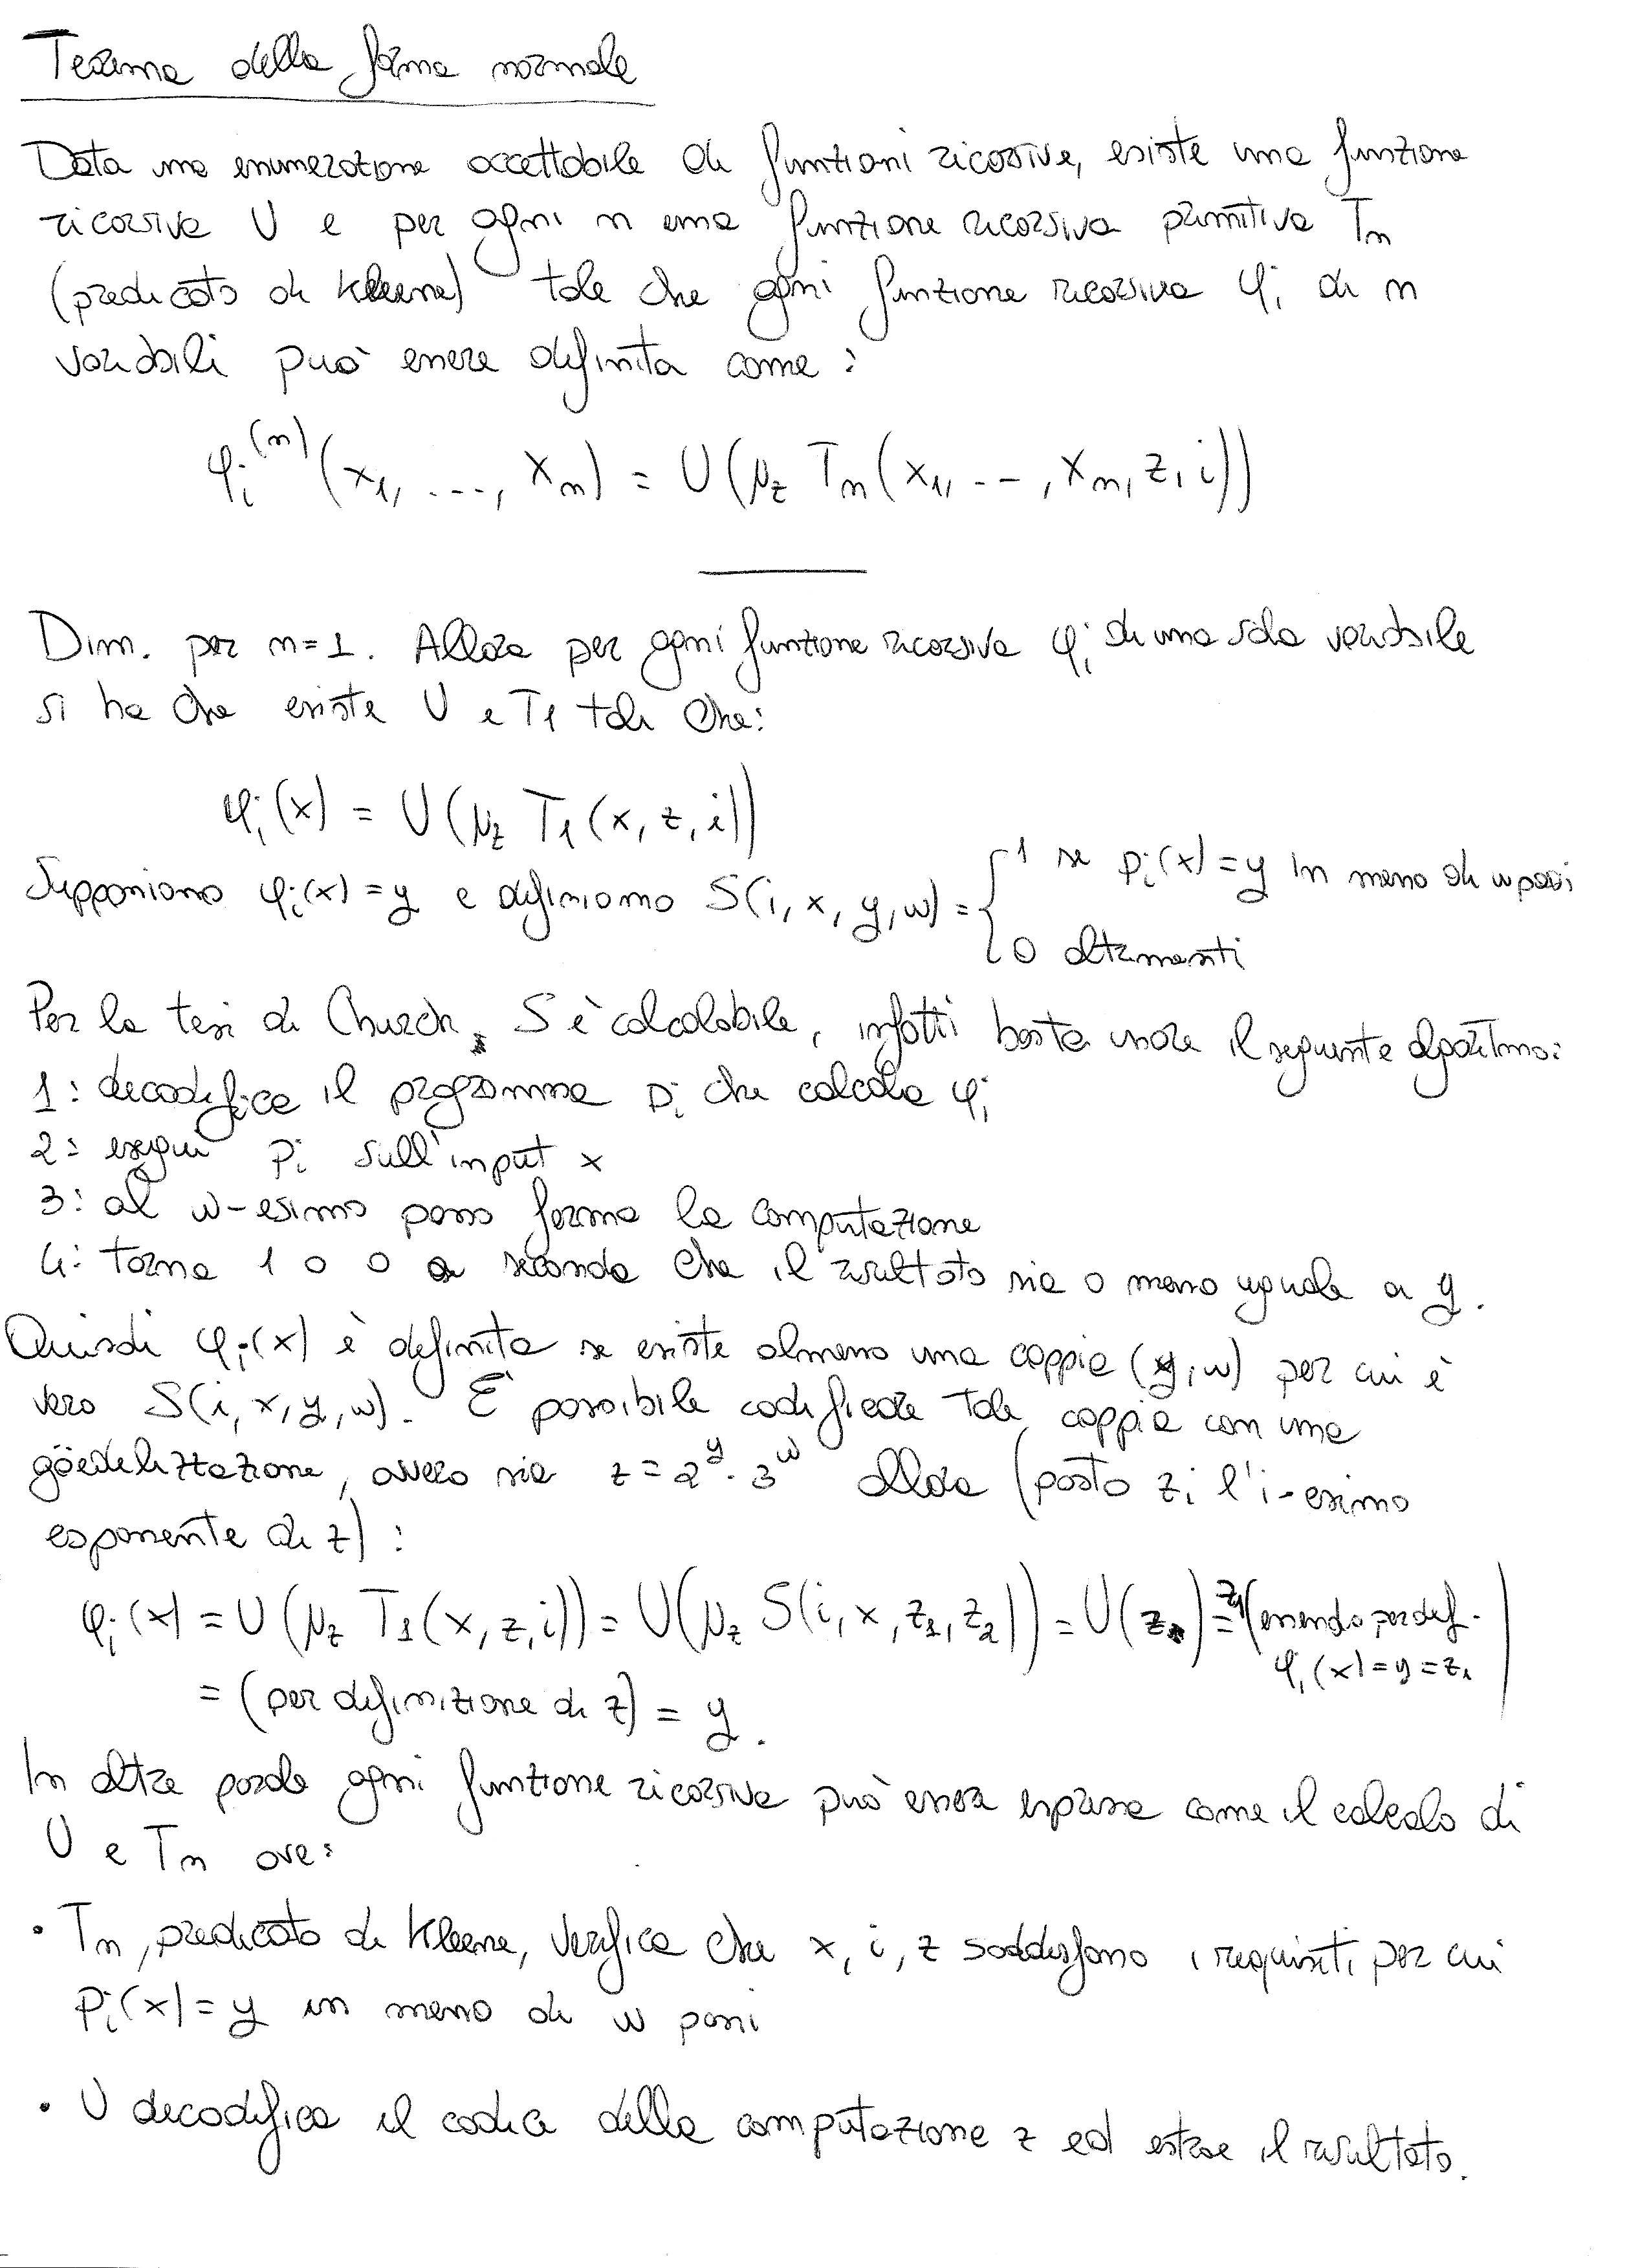 Teorema della forma normale
Data una enumerazione accettabile di funzioni ricorsive, esiste una funzione
ricorsiva U e per ogni n una funzione ricorsiva primitiva Tn
(predicato di Kleene) tale che ogni funzione ricorsiva φi di n
variabili può essere definita come:
φi^(n)(x1, ..., xn) = U(μz Tn(x1, .., xn, z, i))
Dim. per n=1. Allora per ogni funzione ricorsiva φi di una sola variabile
si ha che esiste U e T1 tali che:
φi(x) = U(μz T1(x, z, i))
Supponiamo φi(x)=y e definiamo S(i, x, y, w) = { 1 se Pi(x)=y in meno di w passi
0 altrimenti
Per la tesi di Church, S è calcolabile, infatti basta usare il seguente algoritmo:
1: decodifica il programma Pi che calcola φi
2: esegui Pi sull'input x
3: al w-esimo passo ferma la computazione
4: torna 1 o 0 a seconda che il risultato sia o meno uguale a y.
Quindi φi(x) è definita se esiste almeno una coppia (y, w) per cui è
vero S(i, x, y, w). È possibile codificare tale coppia con una
göedelizzazione, ovvero sia z = 2^y · 3^w allora (posto zi l'i-esimo
esponente di z):
φi(x) = U(μz T1(x, z, i)) = U(μz S(i, x, z1, z2)) = U(z) = z1 (essendo per def.
φi(x)=y=z1)
= (per definizione di z) = y.
In altre parole ogni funzione ricorsiva può essere espressa come il calcolo di
U e Tn ove:
• Tn, predicato di Kleene, verifica che x, i, z soddisfano i requisiti per cui
Pi(x)=y in meno di w passi
• U decodifica il codice della computazione z ed estrae il risultato.